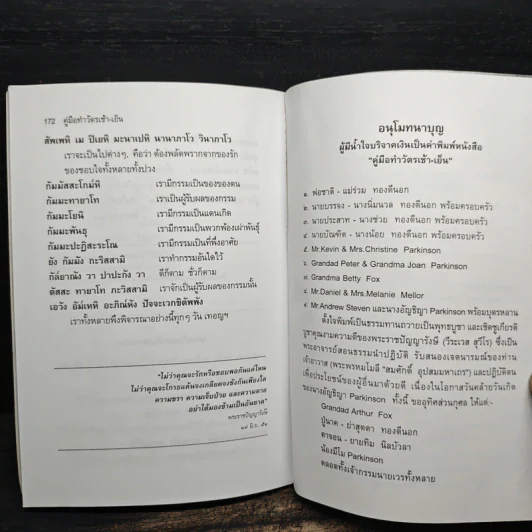 172 คู่มือทำวัตรเช้า-เย็น
สัพเพหิ เม ปิเยหิ มะนาเปหิ นานาภาโว วินาภาโว
เราจะเป็นไปต่างๆ, คือว่า ต้องพลัดพรากจากของรัก
ของชอบใจทั้งหลายทั้งปวง
กัมมัสสะโกมหิ เรามีกรรมเป็นของของตน
กัมมะทายาโท เราเป็นผู้รับผลของกรรม
กัมมะโยนิ เรามีกรรมเป็นแดนเกิด
กัมมะพันธุ เรามีกรรมเป็นพวกพ้องเผ่าพันธุ์
กัมมะปะฏิสะระโณ เรามีกรรมเป็นที่พึ่งอาศัย
ยัง กัมมัง กะริสสามิ เราทำกรรมอันใดไว้
กัล๎ยาณัง วา ปาปะกัง วา ดีก็ตาม ชั่วก็ตาม
ตัสสะ ทายาโท ภะวิสสามิ เราจักเป็นผู้รับผลของกรรมนั้น
เอวัง อัมเหหิ อะภิณหัง ปัจจะเวกขิตัพพัง
เราทั้งหลายพึงพิจารณาอย่างนี้ทุกๆ วัน เทอญฯ
"ไม่ว่าคุณจะรักหรือชอบพอกันแค่ไหน
ไม่ว่าคุณจะโกรธแค้นจงเกลียดจงชังกันเพียงใด
ความชรา ความเจ็บป่วย และความตาย
พระราชปัญญารังษี
อนุโมทนาบุญ
ผู้มีน้ำใจบริจาคเงินเป็นค่าพิมพ์หนังสือ
"คู่มือทำวัตรเช้า-เย็น"
๑. พ่อชาติ - แม่ร่วม ทองดีนอก
๒. นายบรรจง - นางนิ่มนวล ทองดีนอก พร้อมครอบครัว
๓. นายประสาท - นางช่วย ทองดีนอก พร้อมครอบครัว
๔. นายบัณฑิต - นางน้อย ทองดีนอก พร้อมครอบครัว
๕. Mr.Kevin & Mrs.Christine Parkinson
๖. Grandad Peter & Grandma Joan Parkinson
๗. Grandma Betty Fox
๘. Mr.Daniel & Mrs.Melanie Mellor
๙. Mr.Andrew Steven และนางอัญชิญา Parkinson พร้อมบุตรหลาน
ตั้งใจพิมพ์เป็นธรรมทานถวายเป็นพุทธบูชา และเชิดชูเกียรติ
บูชาคุณงามความดีของพระราชปัญญารังษี (วีระเวส สุวีโร) ซึ่งเป็น
พระอาจารย์สอนธรรมนำปฏิบัติ รับสนองเจตนารมณ์ของท่าน
เจ้าอาวาส (พระพรหมโมลี "สมศักดิ์ อุปสมมหาเถร") และปฏิบัติตน
เพื่อประโยชน์ของผู้อื่นมาด้วยดี เนื่องในโอกาสวันคล้ายวันเกิด
ของนางอัญชิญา Parkinson ทั้งนี้ ขออุทิศส่วนกุศล ให้แด่:-
Grandad Arthur Fox
ปู่นาค - ย่าสุดตา ทองดีนอก
ตาจอน - ยายทิม นิลบัวลา
น้องมีโม Parkinson
ตลอดทั้งเจ้ากรรมนายเวรทั้งหลาย